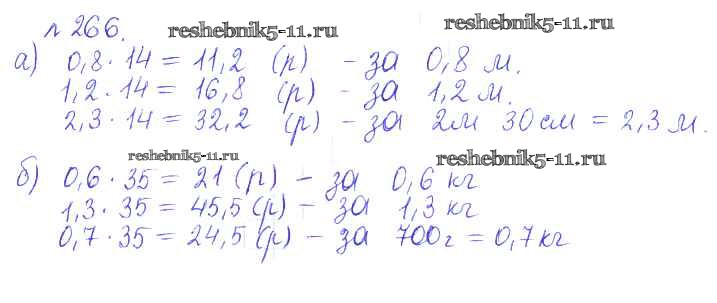 № 266. reshebnik5-11.ru reshebnik5-11.ru
а) 0,8 · 14 = 11,2 (р) - за 0,8 м.
1,2 · 14 = 16,8 (р) - за 1,2 м.
2,3 · 14 = 32,2 (р) - за 2м 30 см = 2,3 м.
reshebnik5-11.ru reshebnik5-11.ru
б) 0,6 · 35 = 21 (р) - за 0,6 кг
1,3 · 35 = 45,5 (р) - за 1,3 кг
0,7 · 35 = 24,5 (р) - за 700г = 0,7кг